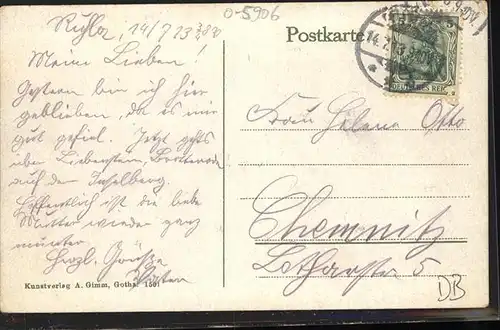 Ruhla, 14/7 13
0-5906
Meine Lieben!
Gestern bin ich hier
geblieben, da es mir
gut gefiel. Jetzt gehts
über Liebenstein, Brotterode
auf den Inselberg
Hoffentlich ist die liebe
Mutter wieder ganz
munter
Herzl. Grüsse
Kunstverlag A. Gimm, Gotha. 1501
Postkarte
14.7.13
DEUTSCHES REICH
Frau Helene Otto
Chemnitz
5
DB